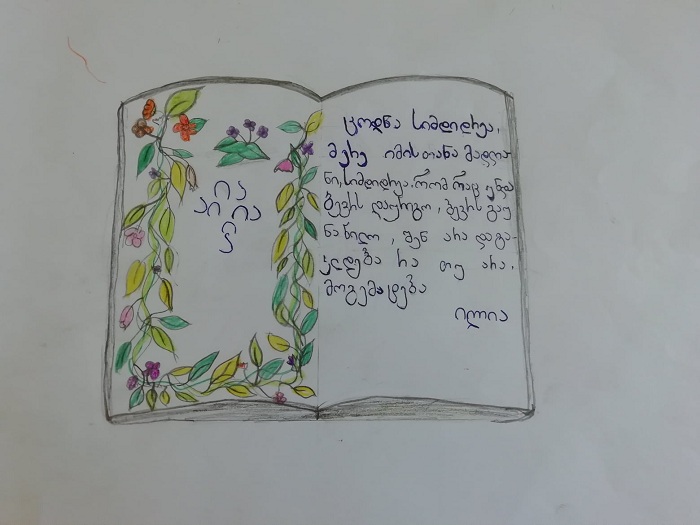 ია
აი ია
ი
ცოდნა სიმდიდრეა,
მერე იმისთანა მადლია-
ნი, სიმდიდრეა. რომ რაც უნდა
ბევრს დაურიგო, ბევრს გაუ
ნაწილო, შენ არა დაგა-
კლდება რა თუ არა,
მოგემატება
ილია